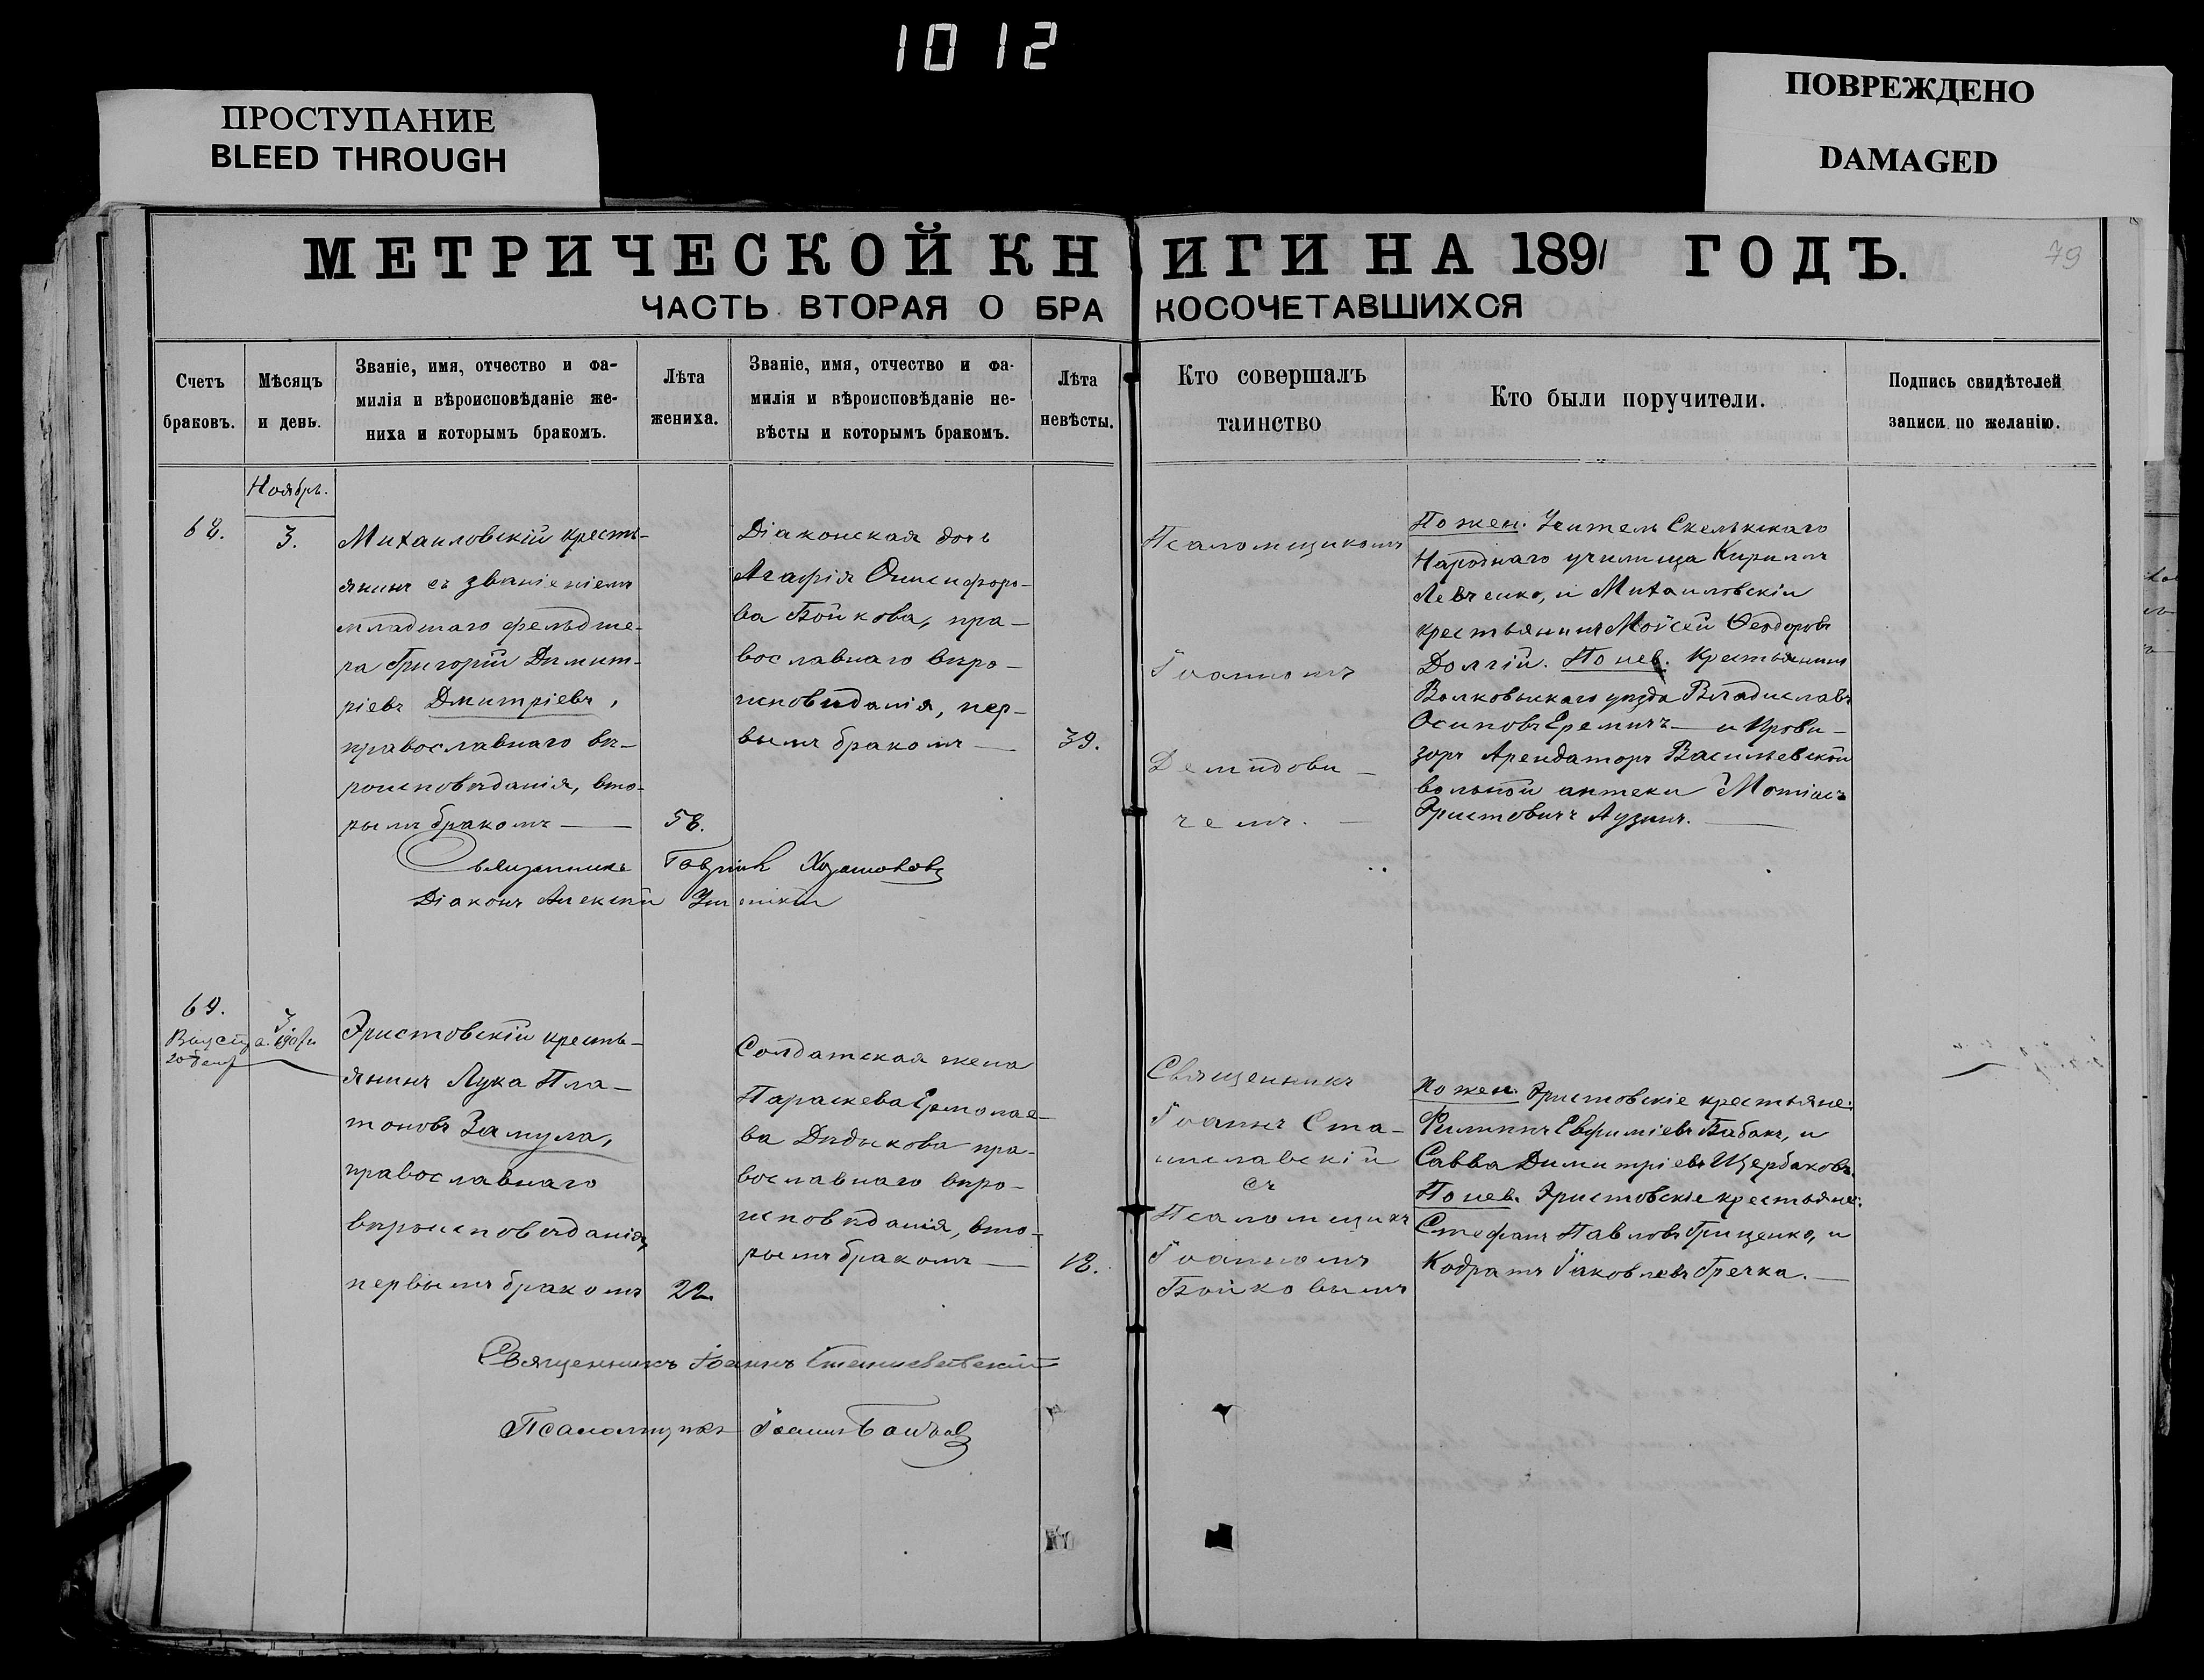 1012
ПРОСТУПАНИЕ
BLEED THROUGH
ПОВРЕЖДЕНО
DAMAGED
МЕТРИЧЕСКОЙ КНИГИ НА 1891 ГОДЪ.
79
ЧАСТЬ ВТОРАЯ О БРАКОСОЧЕТАВШИХСЯ
Счетъ
браковъ.
Мѣсяцъ
и день.
Званіе, имя, отчество и фа-
милія и вѣроисповѣданіе же-
ниха и которымъ бракомъ.
Лѣта
жениха.
Званіе, имя, отчество и фа-
милія и вѣроисповѣданіе не-
вѣсты и которымъ бракомъ.
Лѣта
невѣсты.
Кто совершалъ
таинство
Кто были поручители.
Подпись свидѣтелей
записи по желанію.
Ноябрь.
68.
3.
Михаиловскій кресть-
янинъ съ званіеніемъ
младшаго фельдше-
ра Григорій Димит-
ріевъ Дмитріевъ,
православнаго вѣ-
роисповѣданія, вто-
рымъ бракомъ
58.
Діаконская дочь
Агафія Онисифоро-
ва Бойкова, пра-
вославнаго вѣро-
исповѣданія, пер-
вымъ бракомъ
39.
Псаломщикомъ
Іоанномъ
Демидови-
чемъ.
По жен. Учитель Скельскаго
Народнаго училища Кириллъ
Левченко, и Михаиловскій
крестьянинъ Мойсей Ѳеодоровъ
Долгій. По нев. Крестьянинъ
Волковыскаго уѣзда Владиславъ
Осиповъ Еремичъ и Прови-
зоръ Арендаторъ Васильевской
вольной аптеки
Эристовичъ
Священникъ Гавріилъ
Діаконъ Алексій
69.
3
20
Эристовскій кресть-
янинъ Лука Пла-
тоновъ Замула,
православнаго
вѣроисповѣданія,
первымъ бракомъ
22.
Солдатская жена
Параскева Ермолае-
ва Дидыкова пра-
вославнаго вѣро-
исповѣданія, вто-
рымъ бракомъ
18.
Священникъ
Іоаннъ Ста-
ниславскій
съ
Псаломщикъ
Іоанномъ
Бойковымъ
По жен. Эристовскіе крестьяне:
Филиппъ Евфиміевъ Бабакъ, и
Савва Димитріевъ Щербаковъ.
По нев. Эристовскіе крестьяне:
Стефанъ Павловъ Гриценко, и
Кодратъ Іаковлевъ Гречка.
Священникъ Іоаннъ Станиславскій
Псаломщикъ Іоаннъ Бойковъ